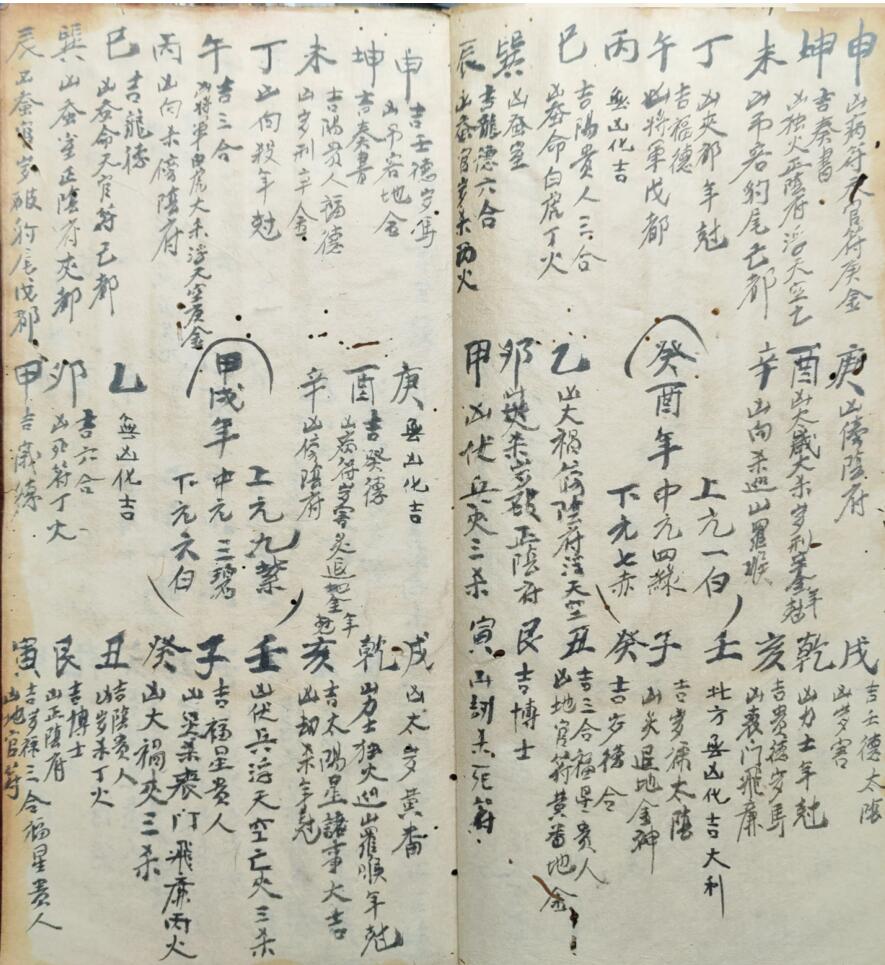 申
凶病符天官符庚金
坤
吉奏書
凶独火正陰府浮天空亡
未
凶吊客豹尾亡都
丁
凶夾都年尅
午
吉福德
凶将軍戊都
丙
無凶化吉
巳
吉陽貴人三合
凶蚕命白虎丁火
巽
凶蚕室
辰
吉龍德六合
凶蚕官岁杀丙火
庚
凶傍陰府
酉
凶大歲大杀岁刑辛金年尅
辛
凶向杀巡山羅睺
癸酉年
上元一白
中元四綠
下元七赤
乙
凶大禍傍陰府浮天空
卯
凶災杀岁破正陰府
甲
凶伏兵夾三杀
戌
吉壬德太陰
凶岁害
乾
凶力士年尅
亥
吉貴德岁馬
凶喪门飛廉
壬
北方無凶化吉大利
子
吉岁祿太陰
凶炙退地金神
癸
吉岁德合
丑
吉三合福星貴人
凶地官符黄番地金
艮
吉博士
寅
凶刧杀死符
申
吉壬德岁馬
凶吊客地金
坤
吉奏書
未
吉陽貴人福德
凶岁刑辛金
丁
凶向殺年尅
午
吉三合
凶将軍白虎大杀浮天空庚金
丙
凶向杀傍陰府
巳
吉龍德
凶蚕命天官符己都
巽
凶蚕室正陰府夾都
辰
凶蚕官岁破豹尾戊都
庚
無凶化吉
酉
吉癸德
凶病符岁害炙退地金年尅
辛
凶傍陰府
甲戌年
上元九紫
中元三碧
下元六白
乙
無凶化吉
卯
吉六合
凶死符丁火
甲
吉歲德
戌
凶太岁黄番
乾
凶力士独火巡山羅睺年尅
亥
吉太陽星諸事大吉
凶劫杀年尅
壬
凶伏兵浮天空亡夾三杀
子
吉福星貴人
凶災杀喪门飛廉丙火
癸
凶大禍夾三杀
丑
吉陰貴人
凶岁杀丁火
艮
吉博士
凶正陰府
寅
吉岁祿三合福星貴人
凶地官符